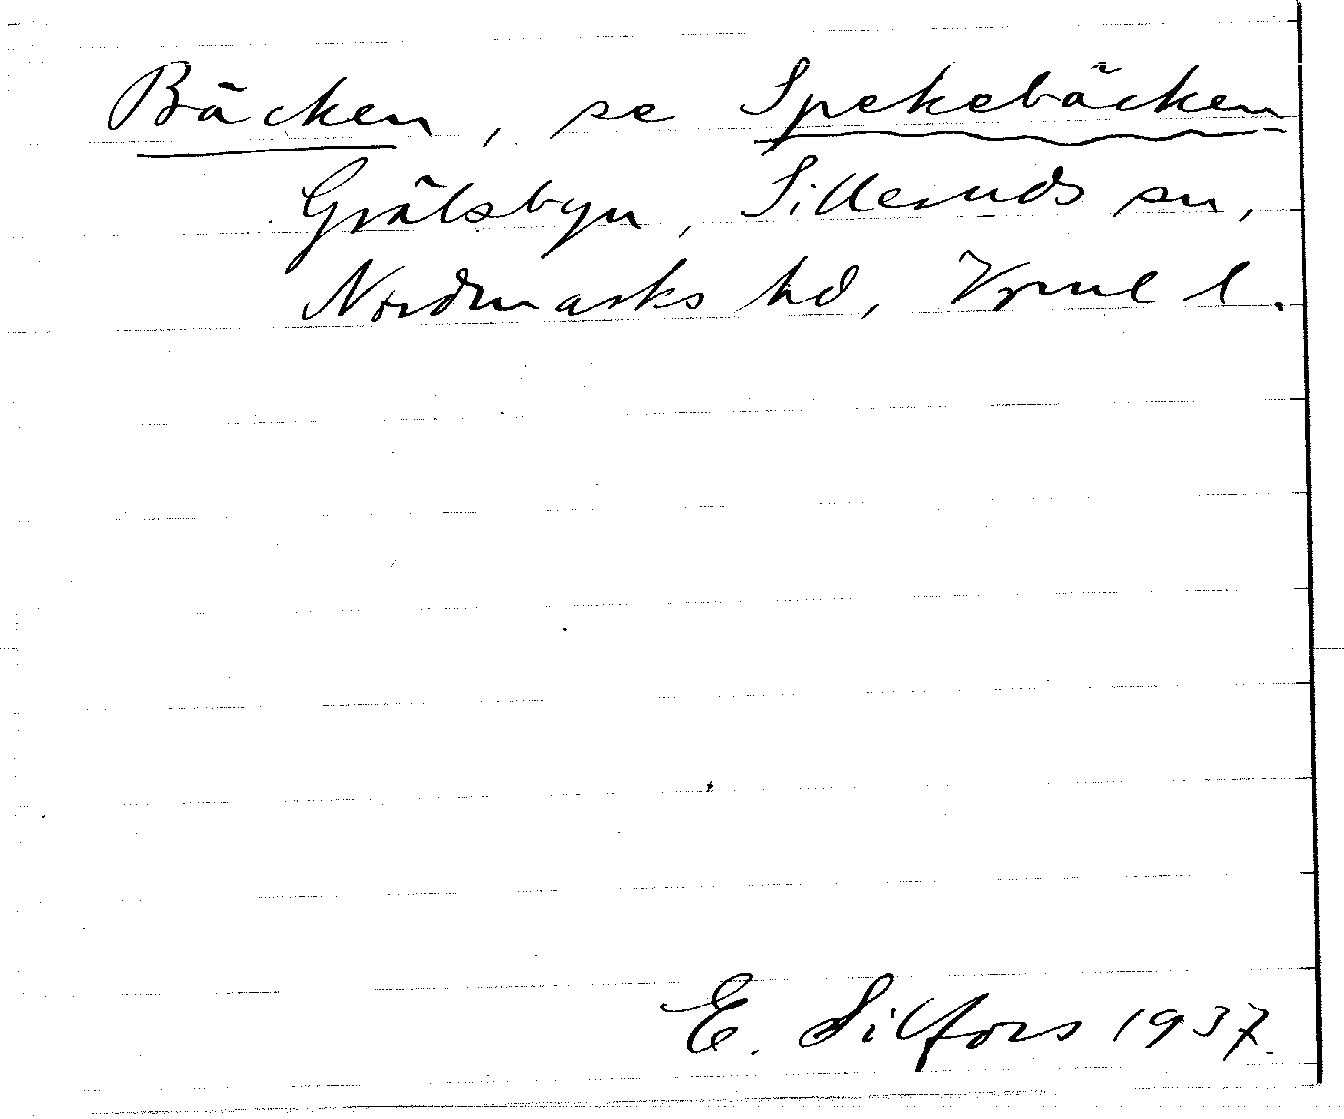 Bäcken, se Spekebäcken
Grälsbyn, Silleruds sn,
Nordmarks hd, Vrml l.
E. Silfors 1937.